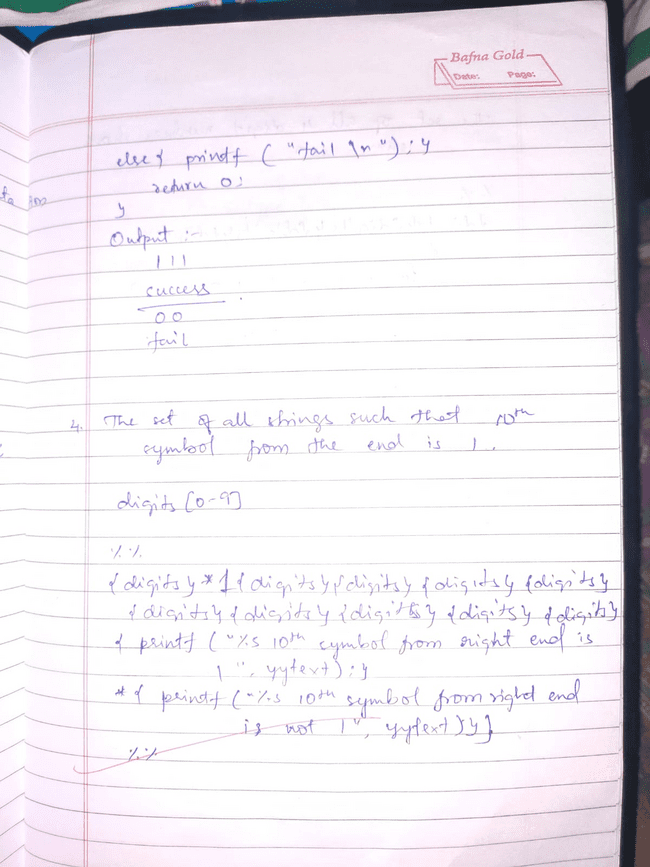 Bafna Gold
Date: Page:
else { printf ( "fail \n"); }
return 0;
}
Output :-
111
success
00
fail
4. The set of all strings such that 10th
symbol from the end is 1.
digits [0-9]
%%
{digits}*1{digits}{digits}{digits}{digits}
{digits}{digits}{digits}{digits}{digits}
{ printf ("%s 10th symbol from right end is
1", yytext); }
* { printf ("%s 10th symbol from right end
is not 1", yytext)}}
%%